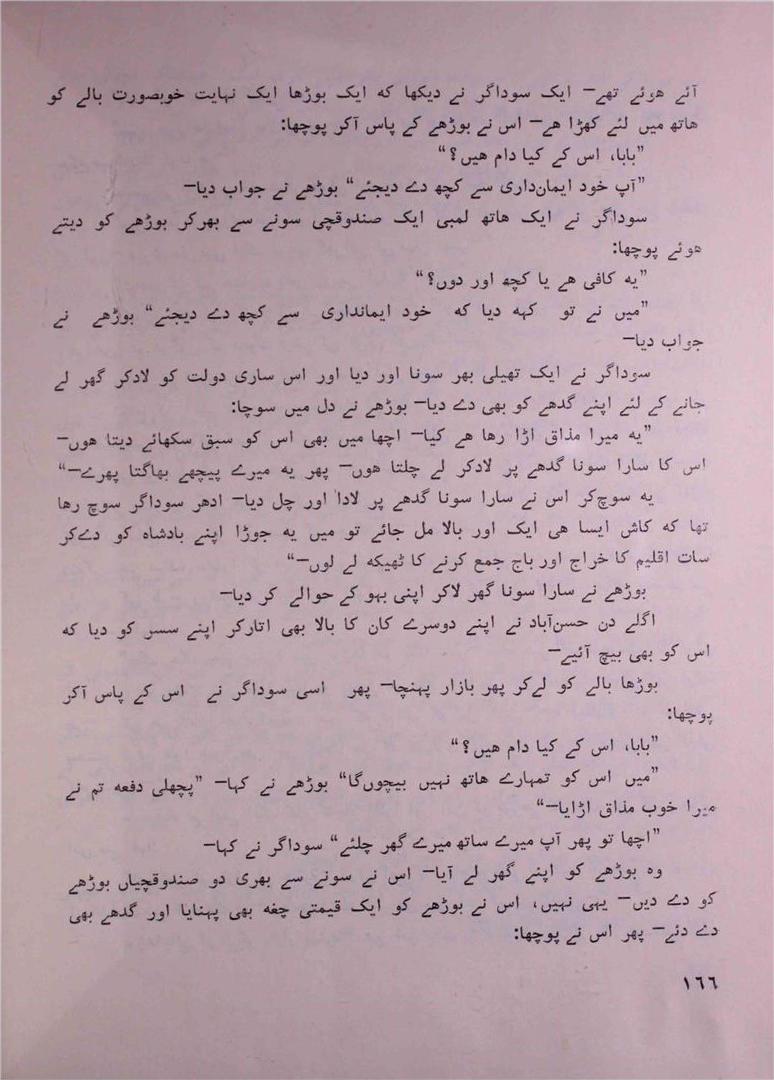 آئے ھوئے تھے— ایک سوداگر نے دیکھا که ایک بوڑھا ایک نہایت خوبصورت بالے کو
ھاتھ میں لئے کھڑا ھے— اس نے بوڑھے کے پاس آکر پوچھا:
”بابا، اس کے کیا دام ھیں؟“
”آپ خود ایمان‌داری سے کچھ دے دیجئے“ بوڑھے نے جواب دیا—
سوداگر نے ایک ھاتھ لمبی ایک صندوقچی سونے سے بھرکر بوڑھے کو دیتے
ھوئے پوچھا:
”یه کافی ھے یا کچھ اور دوں؟“
”میں نے تو کہه دیا که خود ایمانداری سے کچھ دے دیجئے“ بوڑھے نے
جواب دیا—
سوداگر نے ایک تھیلی بھر سونا اور دیا اور اس ساری دولت کو لادکر گھر لے
جانے کے لئے اپنے گدھے کو بھی دے دیا— بوڑھے نے دل میں سوچا:
”یه میرا مذاق اڑا رھا ھے کیا— اچھا میں بھی اس کو سبق سکھائے دیتا ھوں—
اس کا سارا سونا گدھے پر لادکر لے چلتا ھوں— پھر یه میرے پیچھے بھاگتا پھرے—“
یه سوچ‌کر اس نے سارا سونا گدھے پر لادا اور چل دیا— ادھر سوداگر سوچ رھا
تھا که کاش ایسا ھی ایک اور بالا مل جائے تو میں یه جوڑا اپنے بادشاه کو دےکر
سات اقلیم کا خراج اور باج جمع کرنے کا ٹھیکه لے لوں—“
بوڑھے نے سارا سونا گھر لاکر اپنی بہو کے حوالے کر دیا—
اگلے دن حسن‌آباد نے اپنے دوسرے کان کا بالا بھی اتارکر اپنے سسر کو دیا که
اس کو بھی بیچ آئیے—
بوڑھا بالے کو لےکر پھر بازار پہنچا— پھر اسی سوداگر نے اس کے پاس آکر
پوچھا:
”بابا، اس کے کیا دام ھیں؟“
”میں اس کو تمہارے ھاتھ نہیں بیچوں‌گا“ بوڑھے نے کہا— ”پچھلی دفعه تم نے
میرا خوب مذاق اڑایا—“
”اچھا تو پھر آپ میرے ساتھ میرے گھر چلئے“ سوداگر نے کہا—
وه بوڑھے کو اپنے گھر لے آیا— اس نے سونے سے بھری دو صندوقچیاں بوڑھے
کو دے دیں— یہی نہیں، اس نے بوڑھے کو ایک قیمتی چغه بھی پہنایا اور گدھے بھی
دے دئے— پھر اس نے پوچھا:
١٦٦